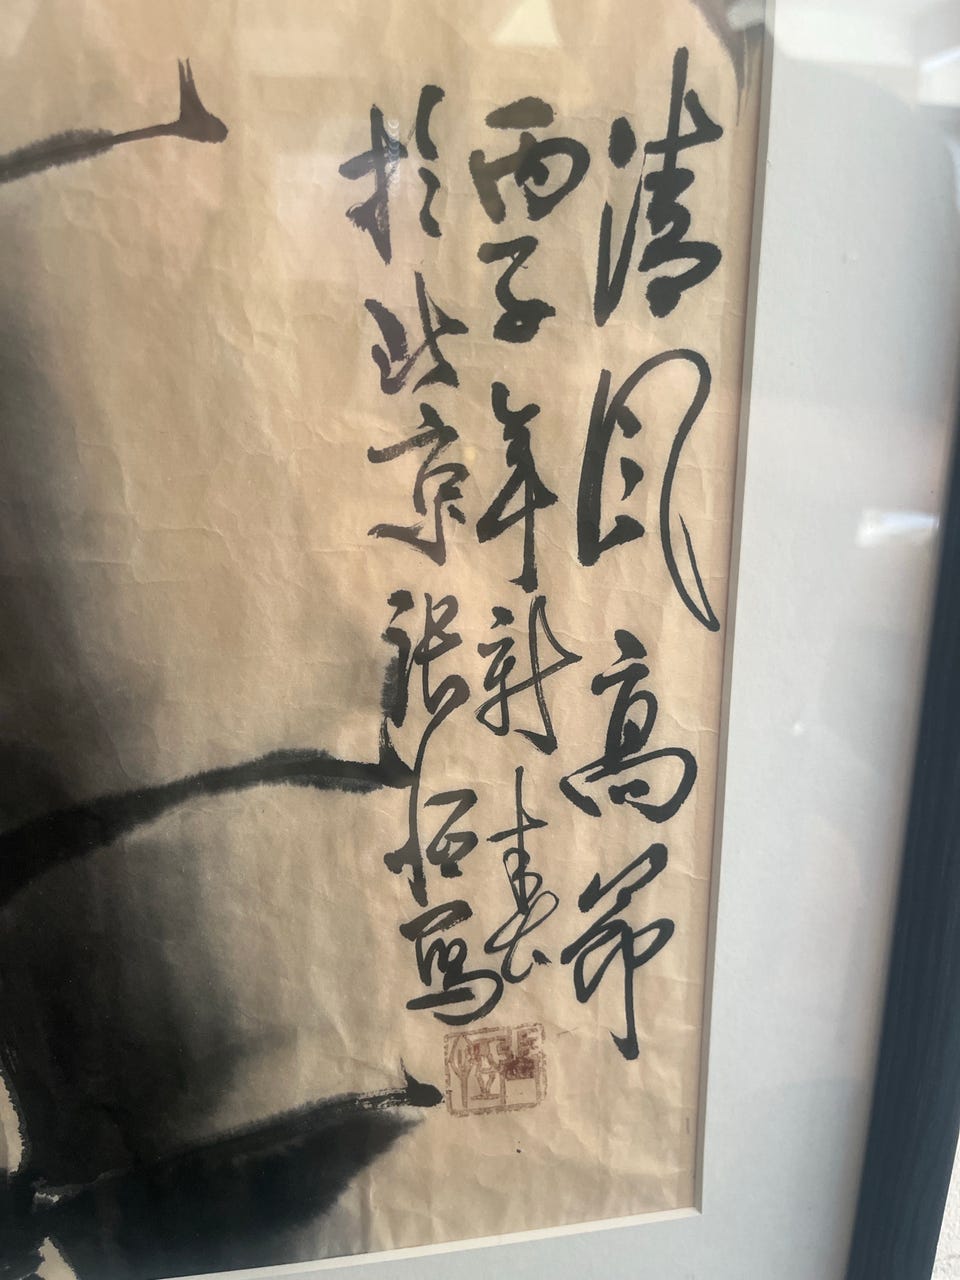 清風高節
丙子年新春
於北京張恒寫